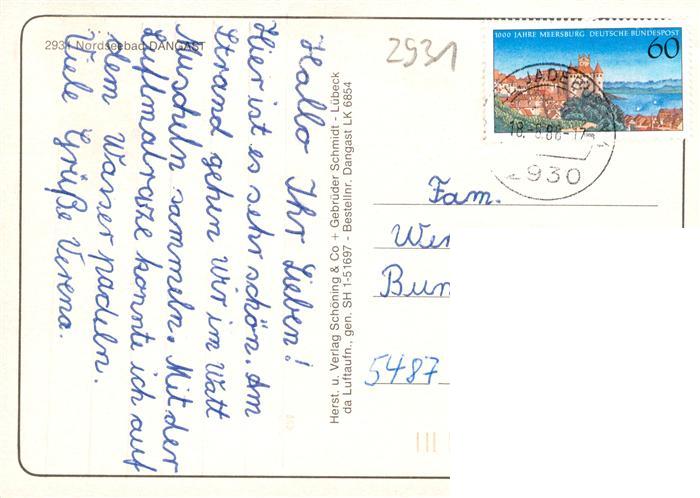 2931 Nordseebad DANGAST
Hallo Ihr Lieben!
Hier ist es sehr schön. Am
Strand gehen wir im Watt
Muscheln sammeln. Mit der
Luftmatratze konnte ich auf
dem Wasser padeln.
Viele Grüße Verena.
Herst. u. Verlag Schöning & Co + Gebrüder Schmidt - Lübeck
da Luftaufn., gen. SH 1-51697 - Bestellnr. Dangast LK 6854
2931
1000 JAHRE MEERSBURG DEUTSCHE BUNDESPOST
60
JADE
18.-8.88-17
2930
Fam.
Wer
Bun
5487